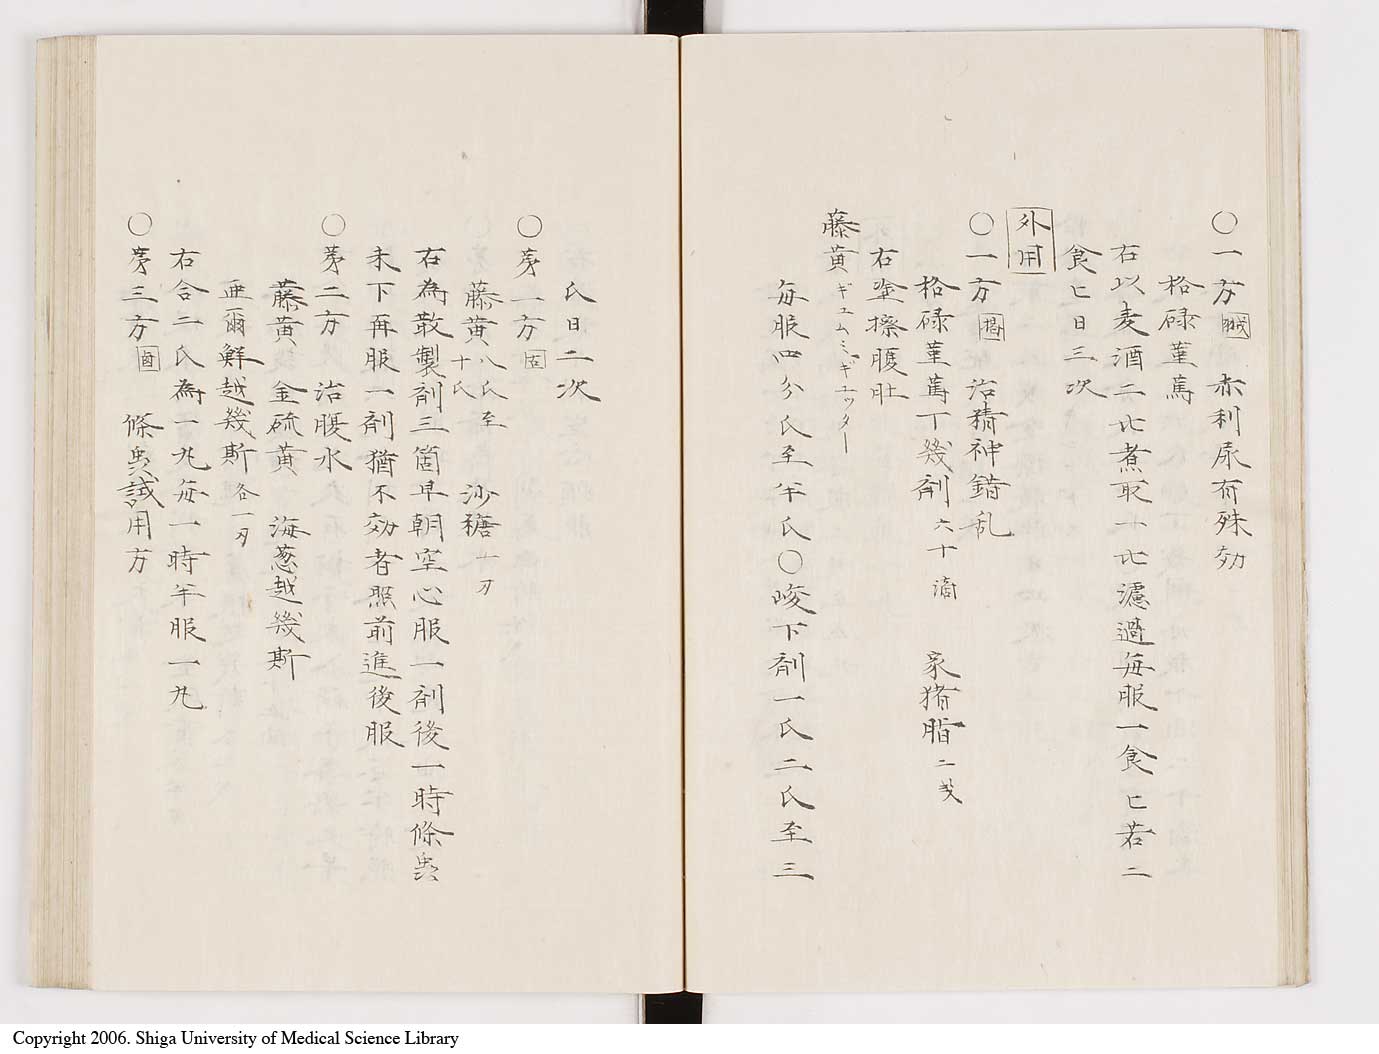 〇一方 亦利尿有殊効
格碌菫蔦
右以麦酒二比煮取一比濾過毎服一食匕若二
食匕日三次
外用
〇一方 治精神錯乱
格碌菫蔦丁幾剤六十滴 家猪脂二戔
右塗擦腹肚
藤黄ギュムミ、ギュッター
毎服四分氏至半氏〇峻下剤一氏二氏至三
氏日二次
〇茅一方
藤黄八氏至十氏 沙糖一刄
右為散製剤三箇早朝空心服一剤後一時條虫
未下再服一剤猶不効者照前進後服
〇茅二方 治腹水
藤黄 金硫黄 海葱越幾斯
亜爾鮮越幾斯各一刄
右合二氏為一丸毎一時半服一丸
〇茅三方 條虫試用方
Copyright 2006. Shiga University of Medical Science Library